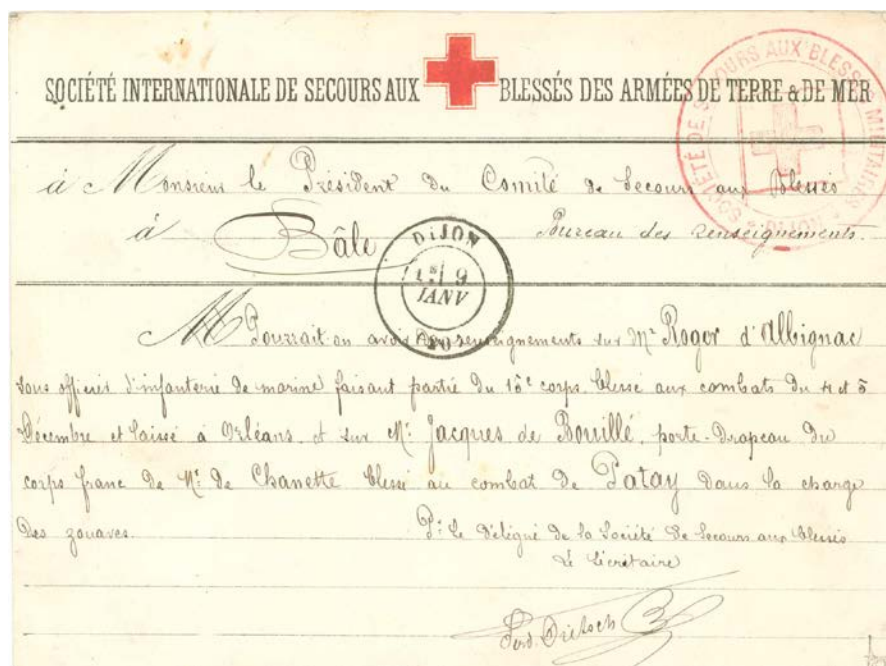 SOCIÉTÉ INTERNATIONALE DE SECOURS AUX BLESSÉS DES ARMÉES DE TERRE & DE MER
SOCIÉTÉ DE SECOURS AUX BLESSÉS MILITAIRES
à Monsieur le Président du Comité de Secours aux Blessés
à Bâle Bureau des renseignements.
DIJON
9
JANV
Pourrait-on avoir des renseignements sur Mr Roger d'Albignac
sous officier d'infanterie de marine faisant partie du 15e corps blessé aux combats du 4 et 5
Décembre et laissé à Orléans, et sur Mr Jacques de Bouillé, porte-drapeau du
corps franc de Mr de Chanette blessé au combat de Patay dans la charge
des zouaves.
Pr le délégué de la Société de Secours aux blessés
Le Secrétaire